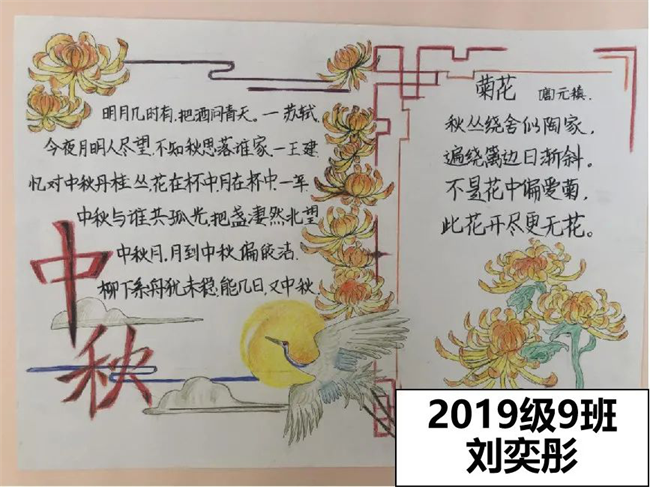 明月几时有,把酒问青天。一苏轼
今夜月明人尽望,不知秋思落谁家.一王建
忆对中秋丹桂丛,花在杯中月在杯中.一辛
中秋与谁共孤光,把盏凄然北望
中秋月,月到中秋偏皎洁.
柳下系舟犹未稳,能几日,又中秋
中秋
菊花 元稹.
秋丛绕舍似陶家,
遍绕篱边日渐斜。
不是花中偏爱菊,
此花开尽更无花。
2019级9班
刘奕彤